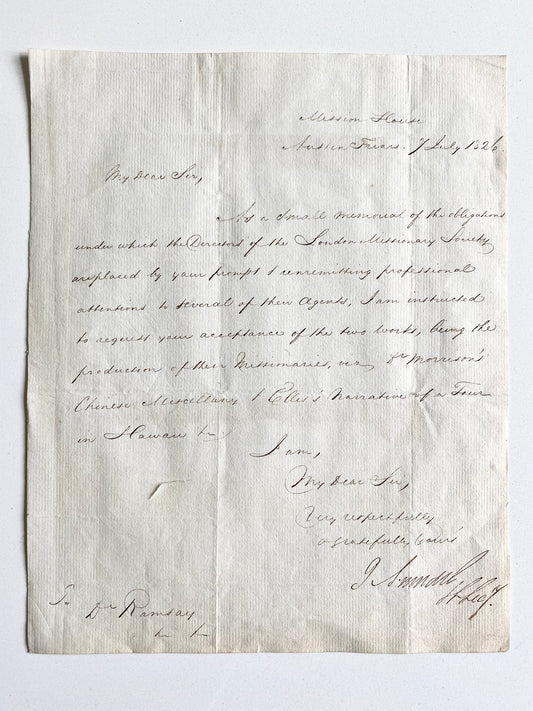 Mission House
Austin Friars. 7 July 1826.
My Dear Sir,
As a small memorial of the obligations
under which the Directors of the London Missionary Society
are placed by your prompt & unremitting professional
attentions to several of their Agents, I am instructed
to request your acceptance of the two works, being the
production of their Missionaries, viz Dr Morrison's
Chinese Miscellany & Ellis's Narrative of a Tour
in Hawaii
I am,
My Dear Sir,
Very respectfully
& gratefully Yours
J. Arundel,
To Dr Ramsay